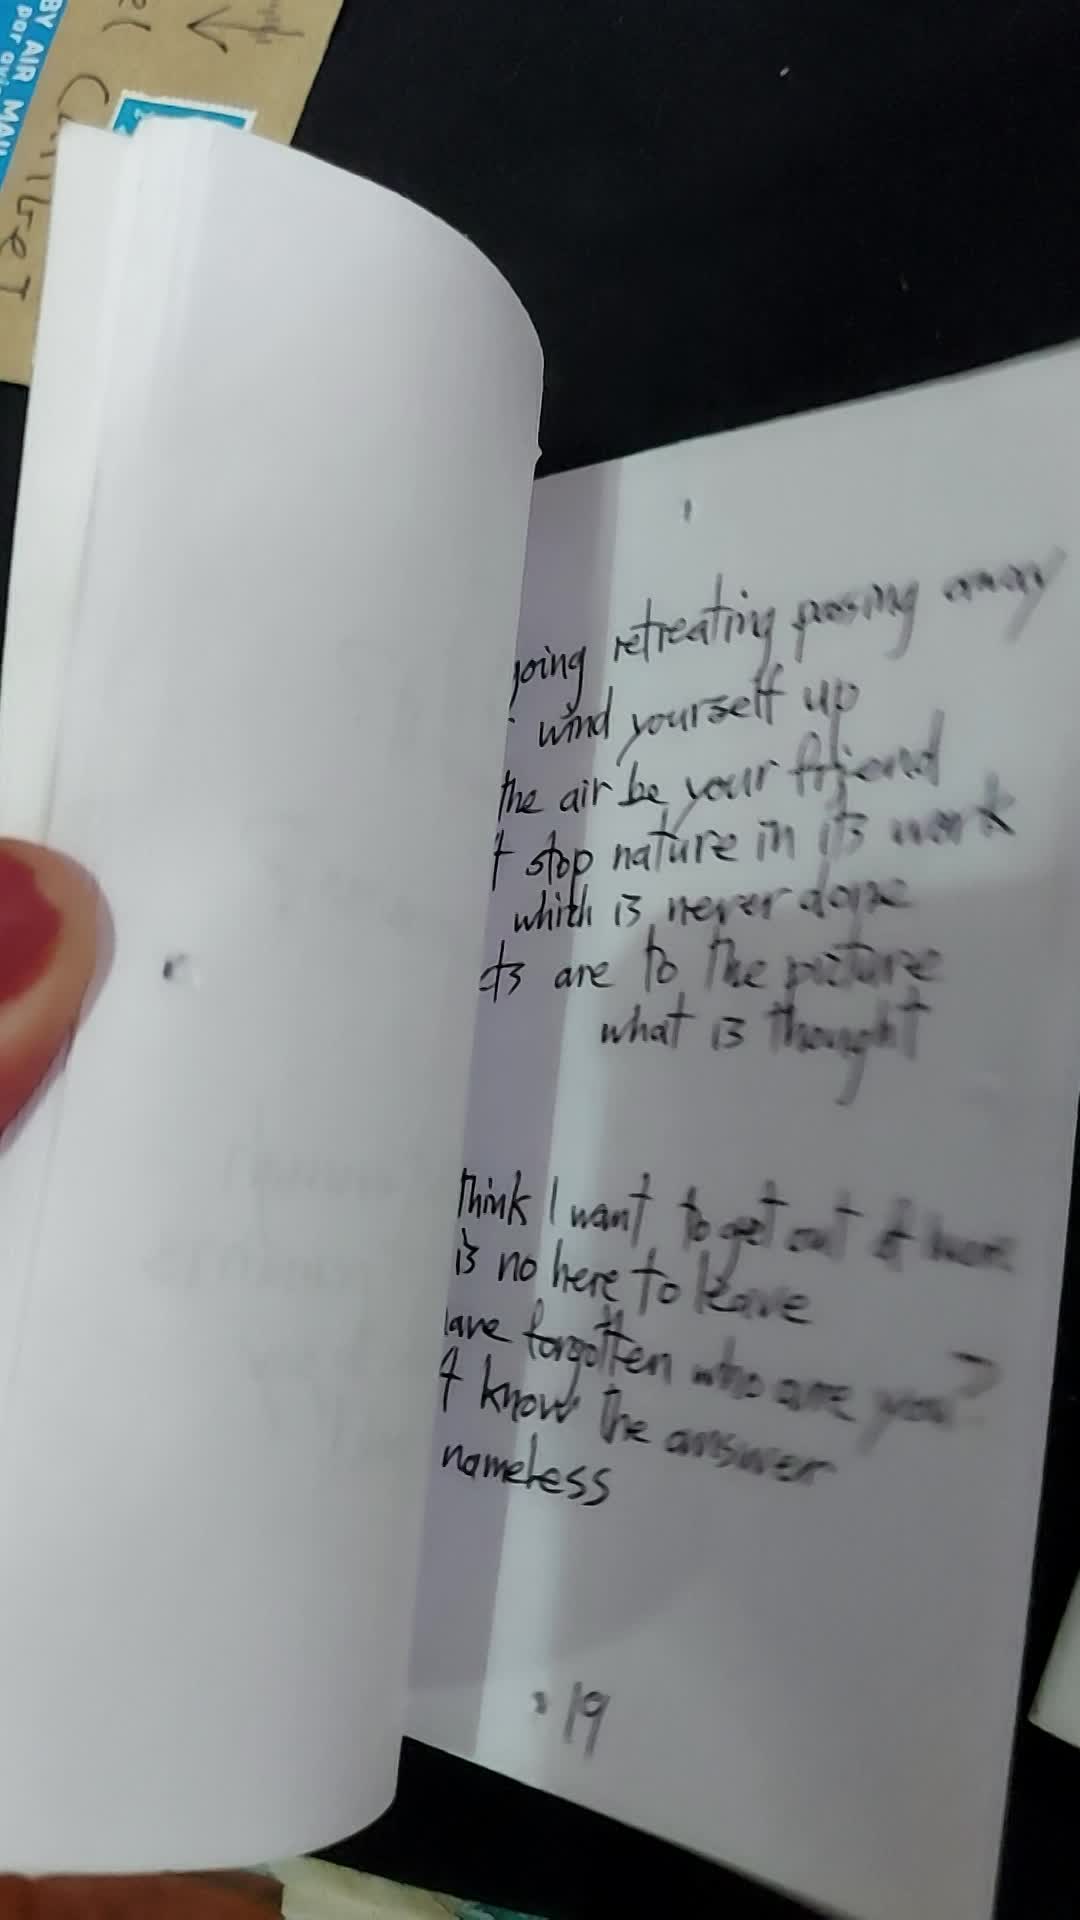 BY AIR MAIL
par avi
going retreating passing away
wind yourself up
the air be your friend
t stop nature in its work
which is never done
cts are to the picture
what is thought
think I want to get out of here
is no here to leave
have forgotten who are you?
t know the answer
nameless
19